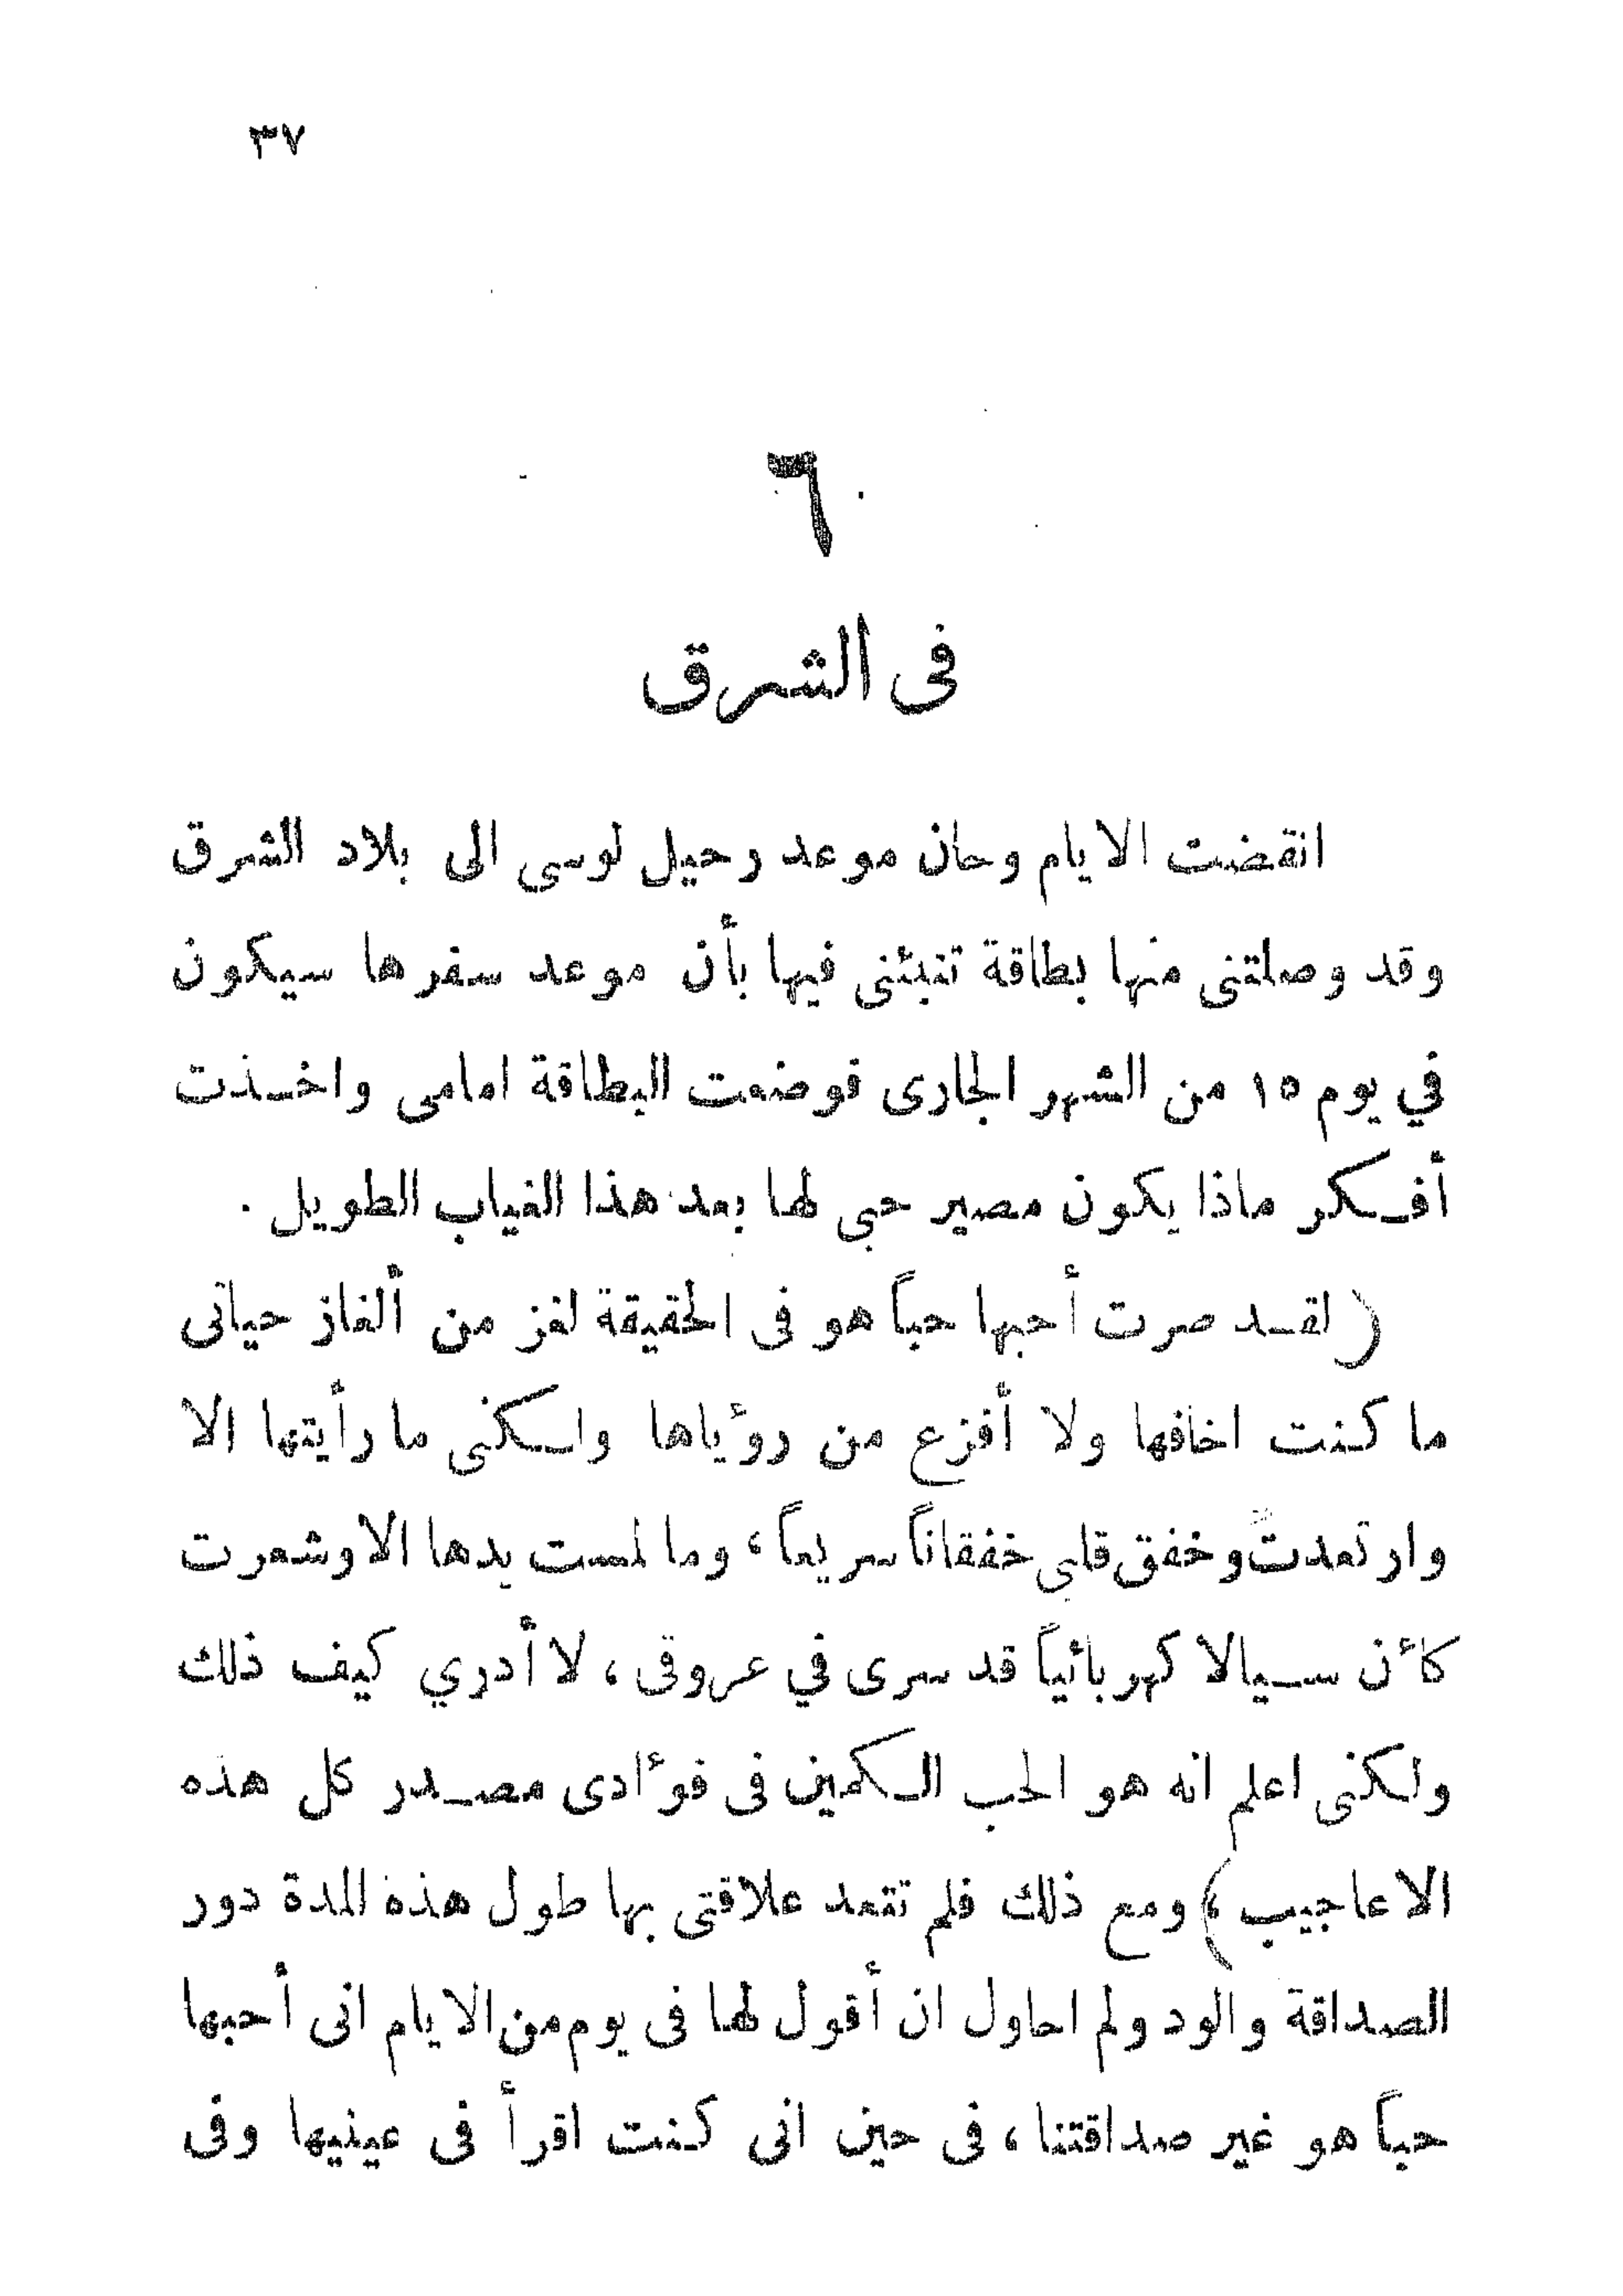 ٣٧
٦
فى الشرق
انقضت الايام وحان موعد رحيل لوسى الى بلاد الشرق
وقد وصلتنى منها بطاقة تنبئنى فيها بأن موعد سفرها سيكون
في يوم ١٥ من الشهر الجارى فوضعت البطاقة امامى واخذت
أفكر ماذا يكون مصير حبى لها بعد هذا الغياب الطويل .
( لقد صرت أحبها حباً هو فى الحقيقة لغز من ألغاز حياتى
ما كنت اخافها ولا أفزع من رؤياها ولكنى ما رأيتها الا
وارتعدت وخفق قلبى خفقاناً سريعاً ، وما لمست يدها الا وشعرت
كأن سيالا كهربائياً قد سرى في عروقى ، لا أدري كيف ذلك
ولكنى اعلم انه هو الحب الكمين فى فؤادى مصدر كل هذه
الاعاجيب ) ، ومع ذلك فلم تتعد علاقتى بها طول هذه المدة دور
الصداقة والود ولم احاول ان أقول لها فى يوم من الايام انى أحبها
حباً هو غير صداقتنا ، فى حين انى كنت اقرأ فى عينيها وفى